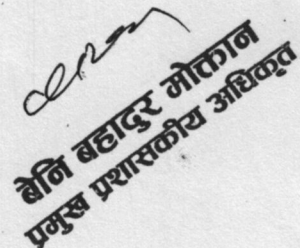 बेनि बहादुर मोक्तान
प्रमुख प्रशासकीय अधिकृत